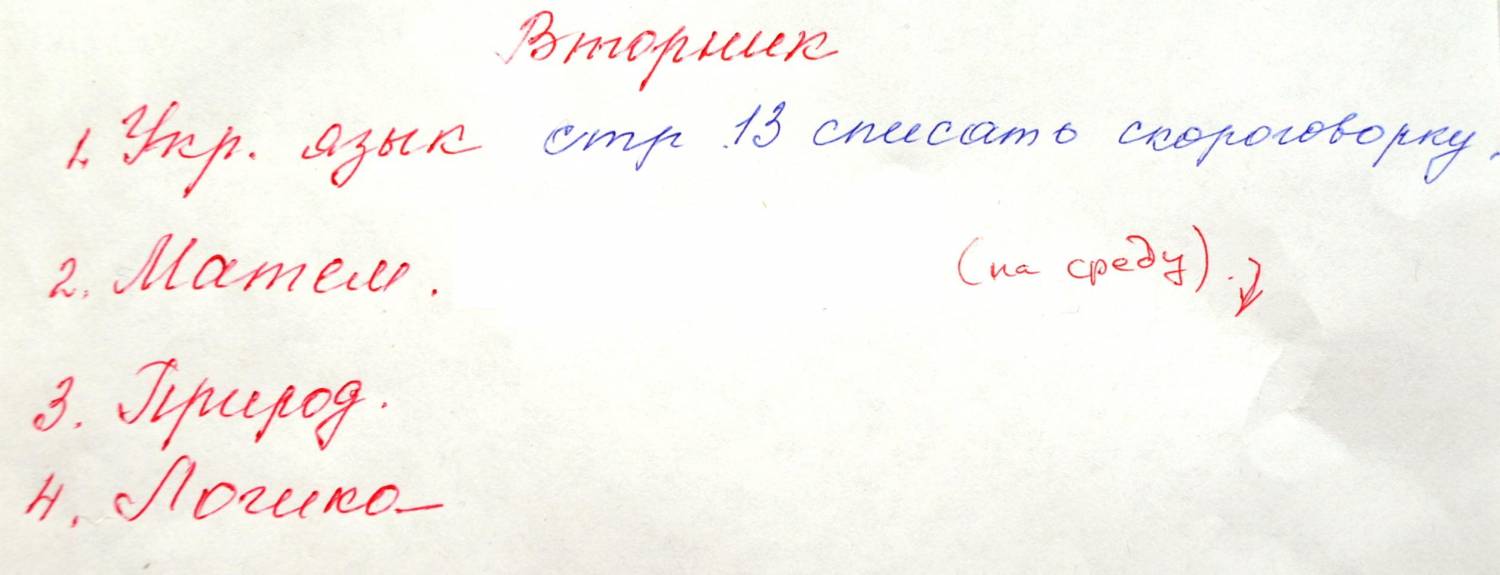 Вторник
1. Укр. язык стр. 13 списать скороговорку.
2. Матем. (на среду).
3. Природ.
4. Логика